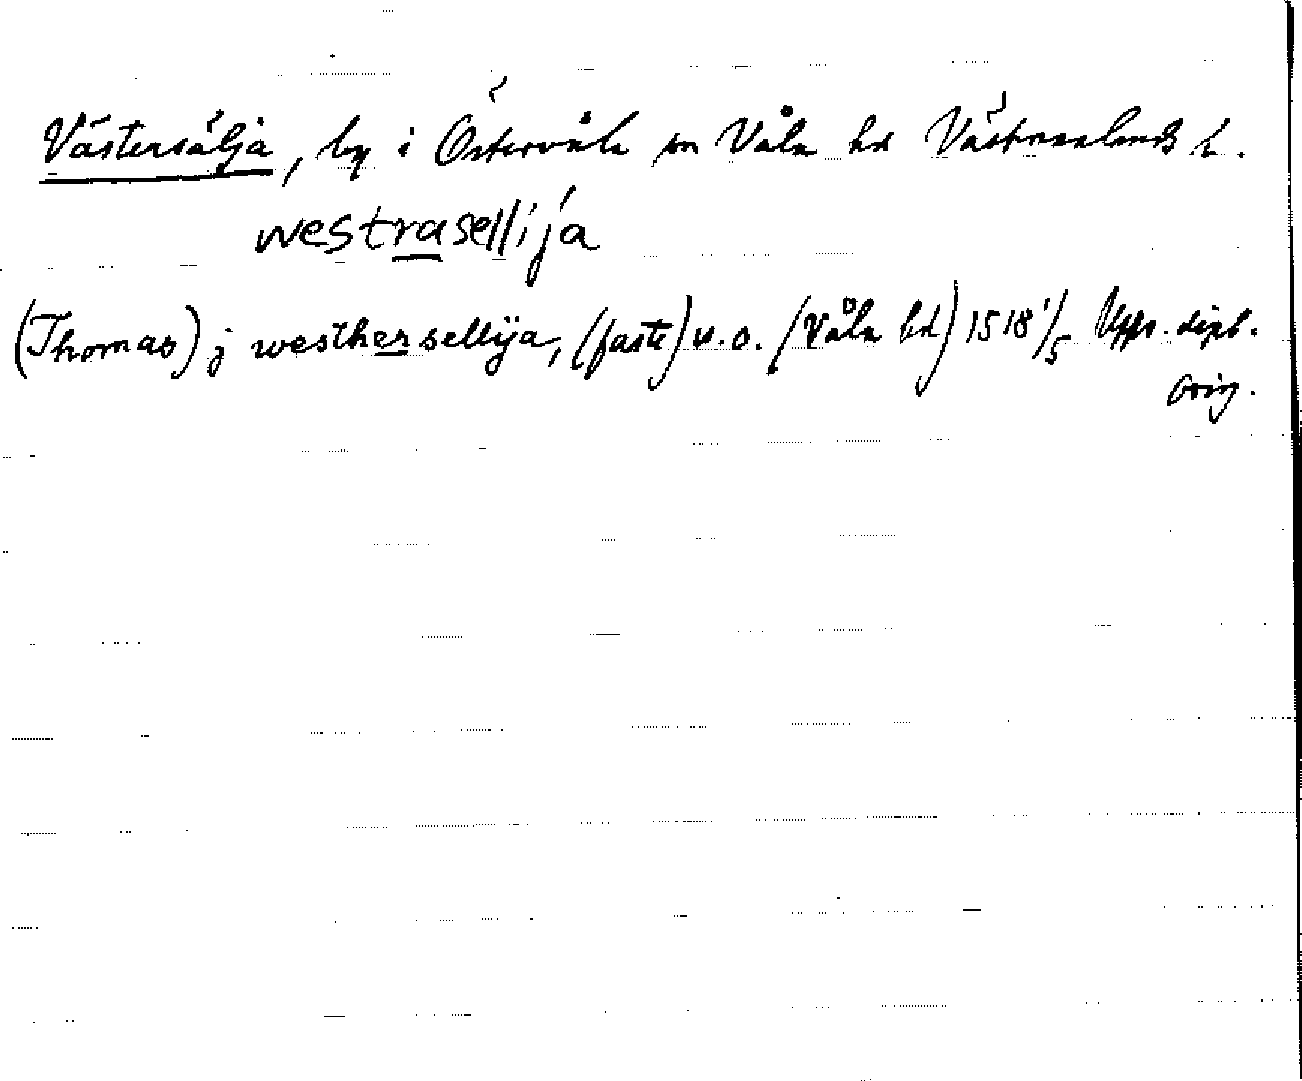 Västersälja, by i Östervåla sn Våla hd Västmanlands l.
westrasellija
(Thomas) j westhersellija, (faste) u.o. (Våla hd) 1518 1/5 Upps. dipl.
orig.